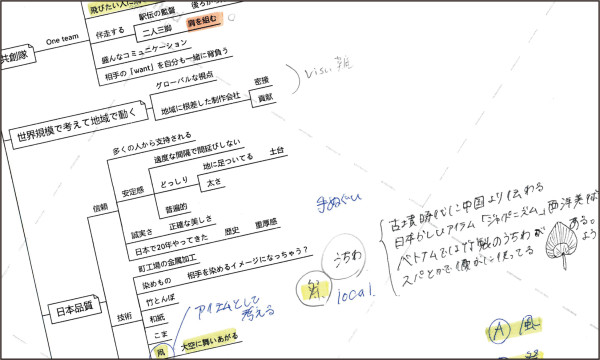 飛びたい人に
駅伝の監督
伴走する
二人三脚
肩を組む
One team
共創隊
盛んなコミュニケーション
相手の「want」を自分も一緒に背負う
グローバルな視点
世界規模で考えて地域で動く
地域に根差した制作会社
密接
貢献
多くの人から支持される
適度な間隔で間延びしない
安定感
どっしり
地に足ついてる
土台
太さ
信頼
普遍的
誠実さ
正確な美しさ
日本で20年やってきた
歴史
重厚感
町工場の金属加工
日本品質
染めもの
相手を染めるイメージになっちゃう？
竹とんぼ
技術
和紙
こま
凧
大空に舞いあがる
アイテムとして
考える
手ぬぐい
うちわ
local.
古墳時代に中国より伝わる
日本らしいアイテム「ジャポニズム」西洋美術
ベトナムでは竹製のうちわが
ある。
スパとかで優雅に使ってる
よう
A 風